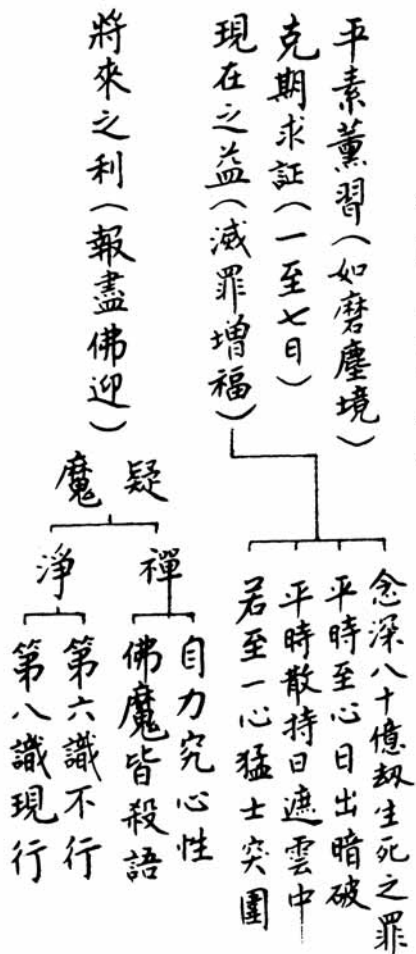 平素薰習（如磨塵境）
克期求証（一至七日）
現在之益（滅罪增福）
念深八十億刼生死之罪
平時至心日出暗破
平時散持日遮雲中
若至一心猛士突圍
將來之利（報盡佛迎）
魔疑
禪
自力究心性
佛魔皆殺語
淨
第六識不行
第八識現行